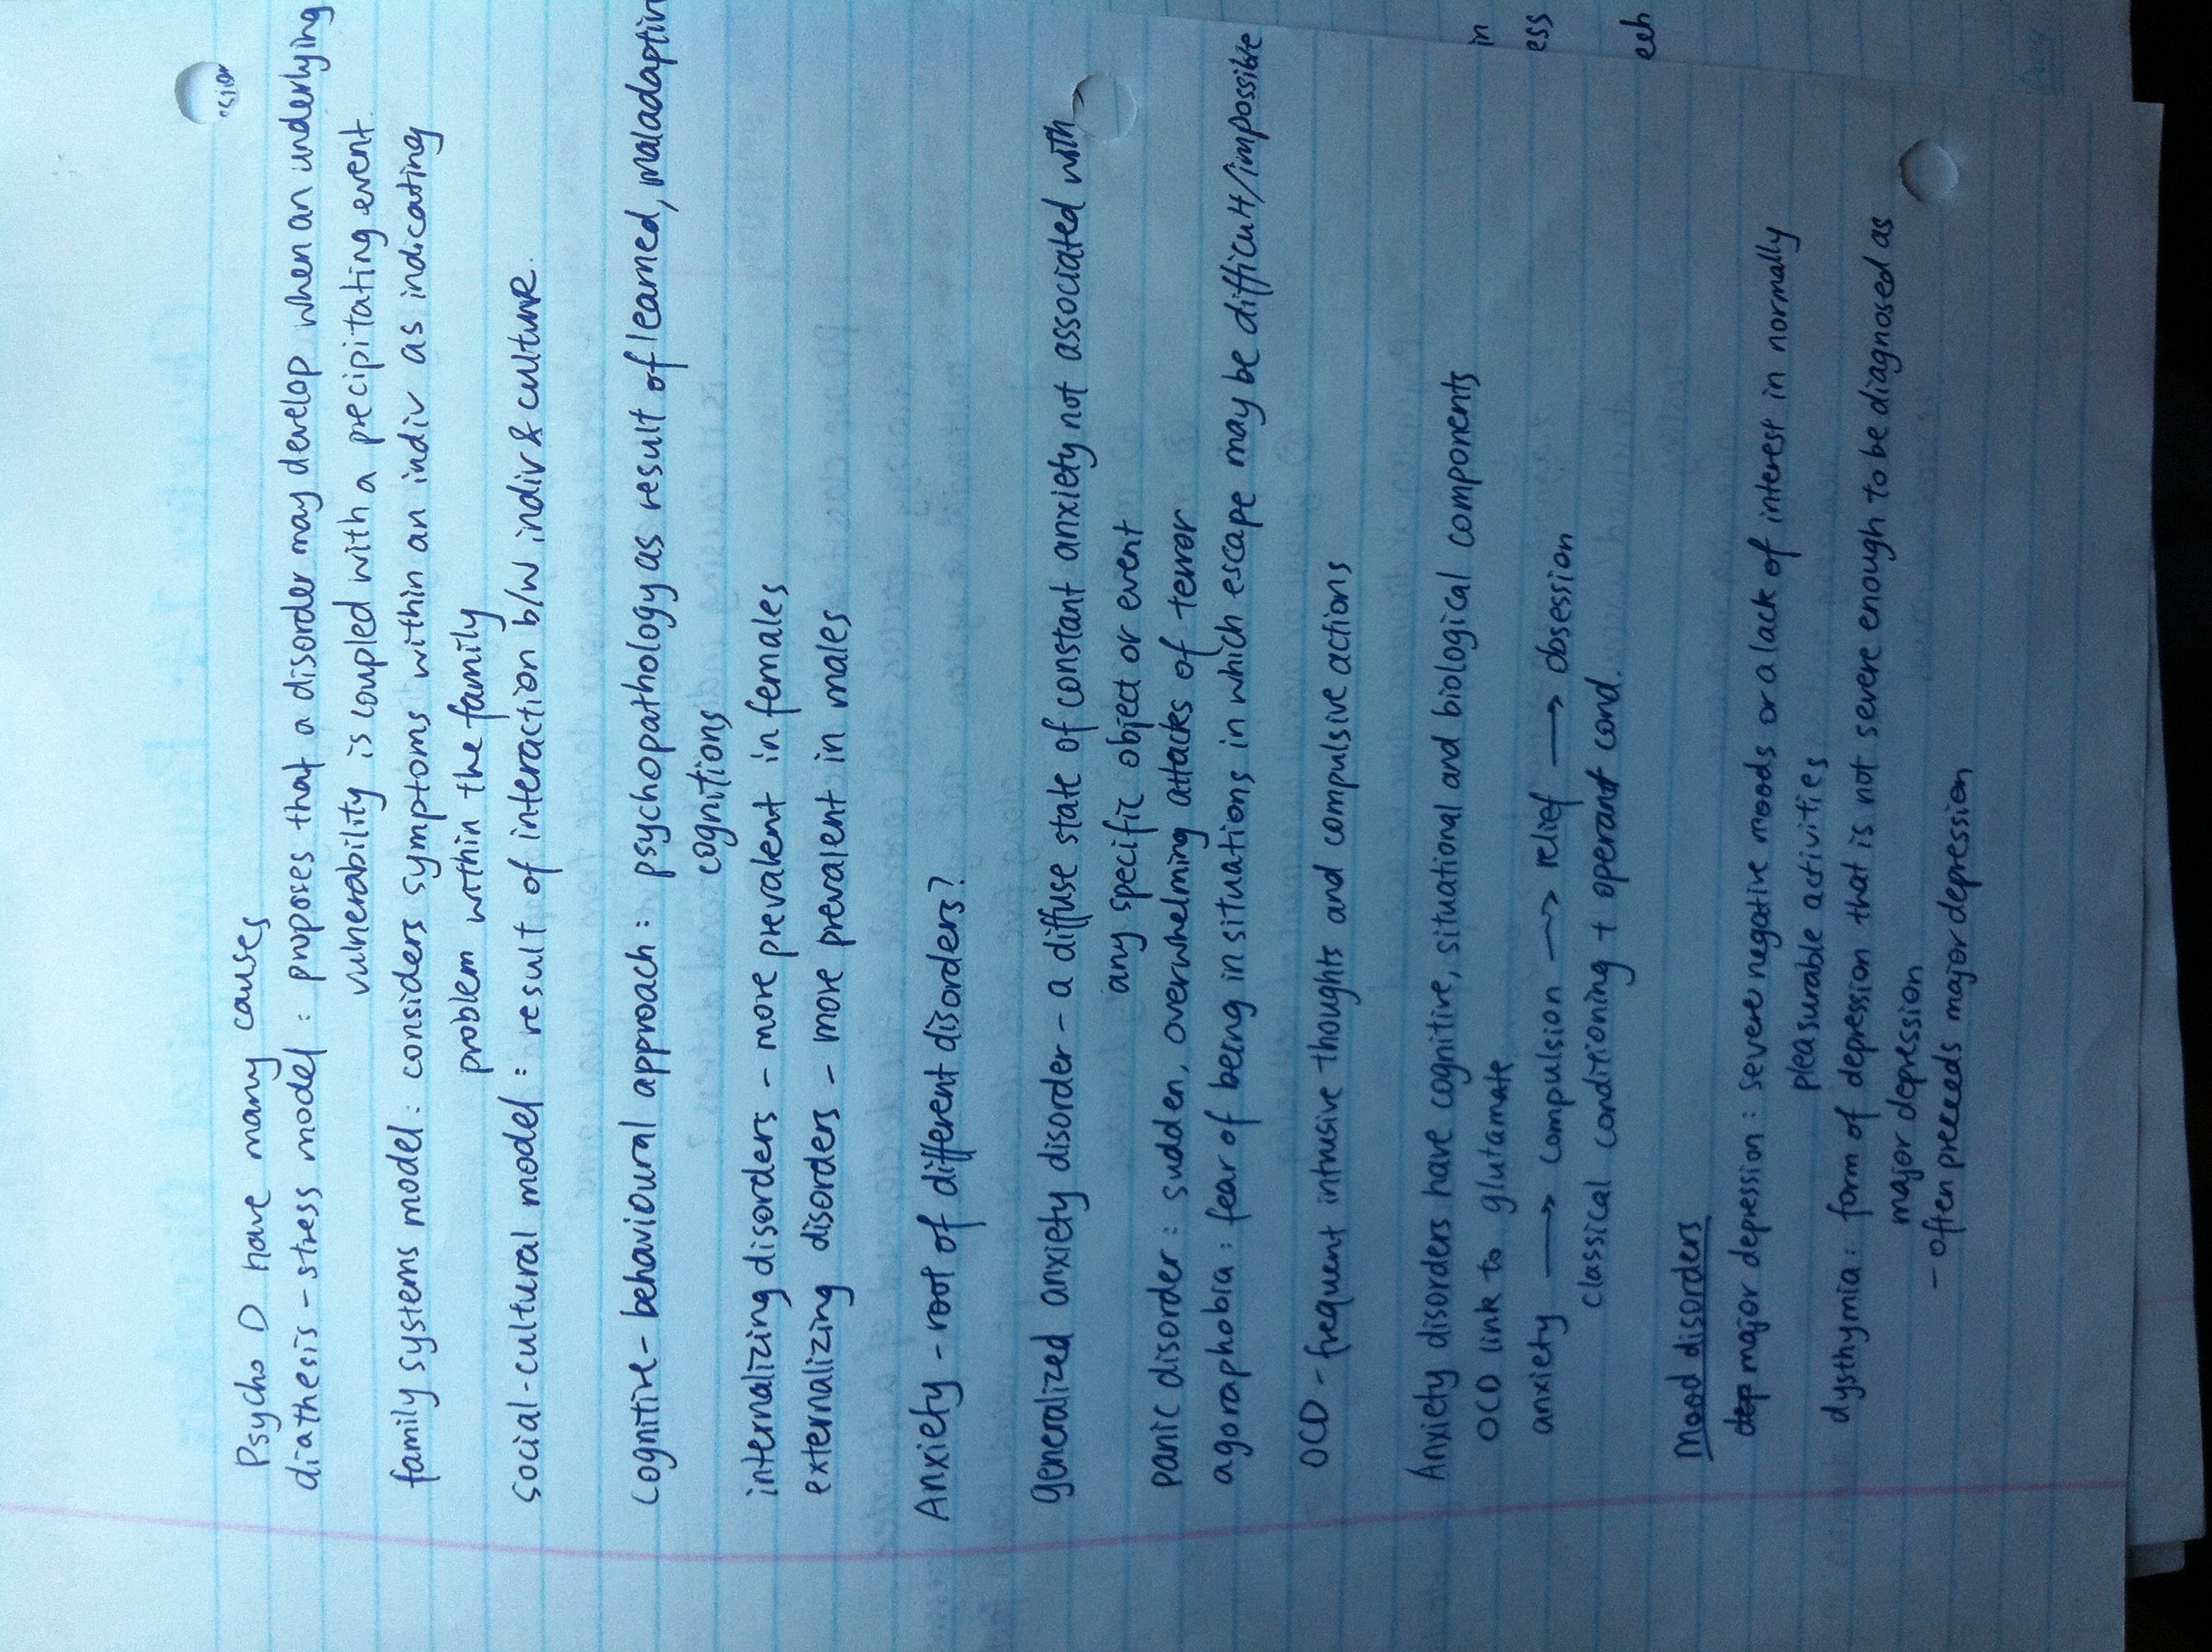 Psycho D have many causes
diathesis - stress model : proposes that a disorder may develop when an underlying
vulnerability is coupled with a precipitating event.
family systems model : considers symptoms within an indiv as indicating
problem within the family
social-cultural model : result of interaction b/w indiv & culture.
cognitive-behavioural approach : psychopathology as result of learned, maladaptiv
cognitions
internalizing disorders - more prevalent in females
externalizing disorders - more prevalent in males
Anxiety - root of different disorders?
generalized anxiety disorder - a diffuse state of constant anxiety not associated with
any specific object or event
panic disorder : sudden, overwhelming attacks of terror
agoraphobia : fear of being in situations in which escape may be difficult/impossible
OCD - frequent intrusive thoughts and compulsive actions
Anxiety disorders have cognitive, situational and biological components
OCD link to glutamate
anxiety → compulsion → relief → obsession
classical conditioning + operant cond.
Mood disorders
dep major depression : severe negative moods or a lack of interest in normally
pleasurable activities
dysthymia : form of depression that is not severe enough to be diagnosed as
major depression
- often preceeds major depression
in
ess